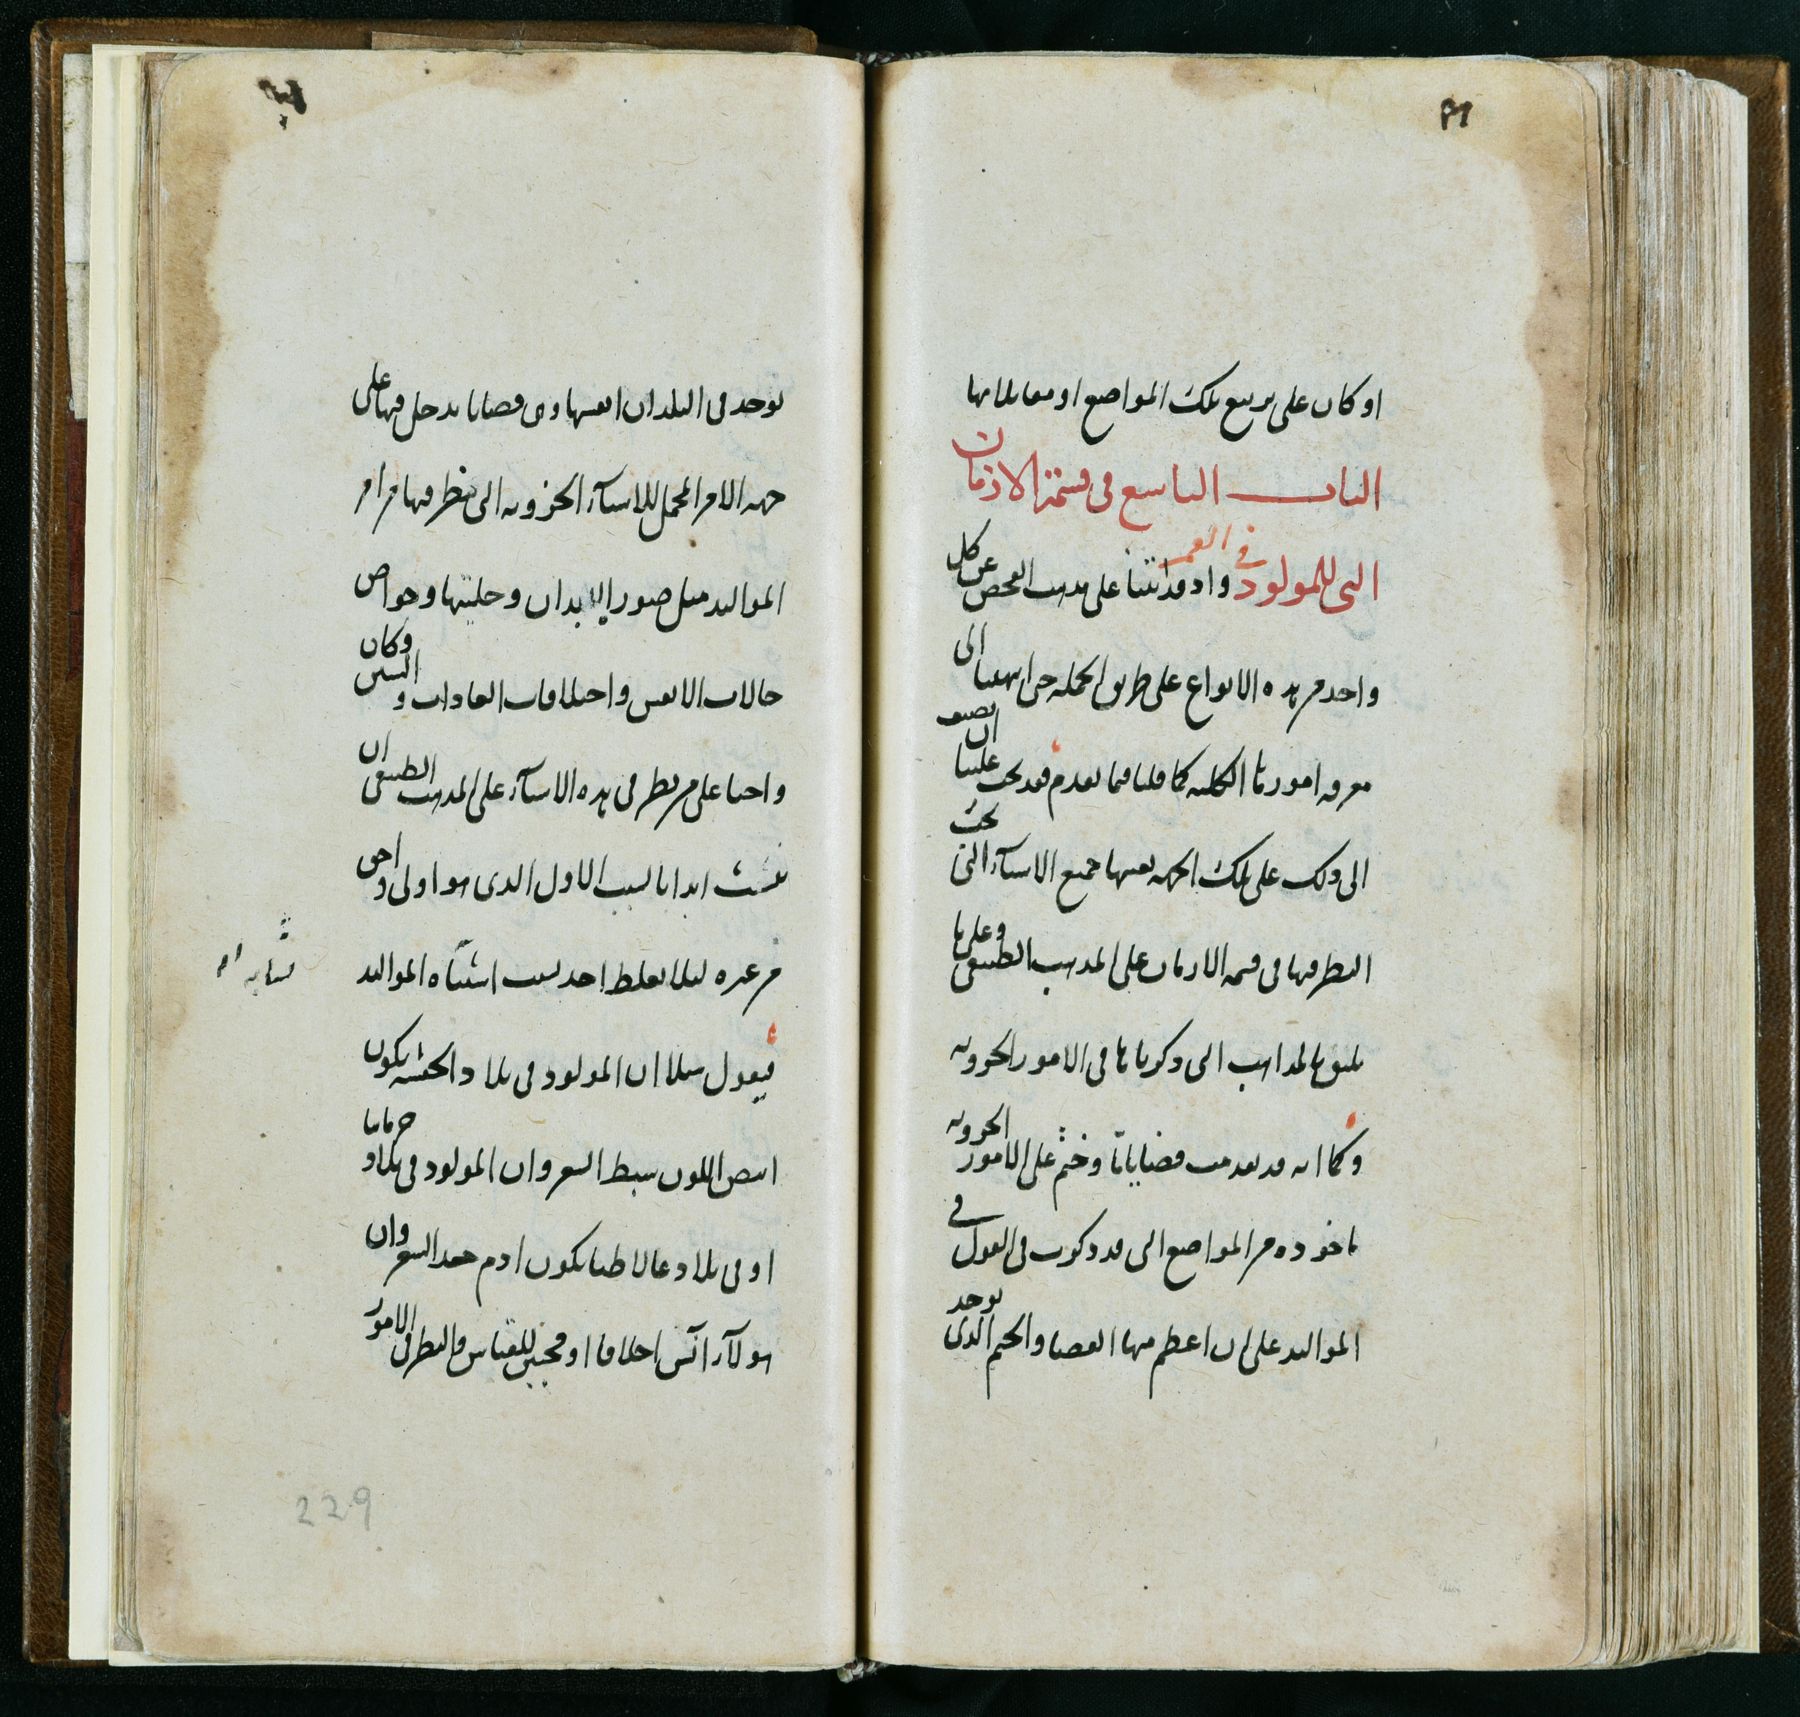 او كان على تربيع تلك المواضع او مقابلاتها
الباب التاسع فى قسمة الازمان
التى للمولود فى العمر واذ قد اتينا على مذهب الفحص عن كل
واحد من هذه الانواع على طريق الجملة حتى انتهينا الى
معرفة امورنا الكلية كما قلنا فيما تقدم فقد يجب علينا ان نضيف
الى ذلك على تلك الجهة بعينها جميع الاشياء التى يجب
النظر فيها فى قسمة الازمان على المذهب الطبيعى وعلى ما
يليق بالمذاهب التى ذكرناها فى الامور الجزوية
وكما انه قد تقدمت قضايانا وختم على الامور الجزوية
ماخوذه من المواضع التى قد ذكرت فى القول فى
المواليد على ان اعظم منها القضا والختم الذى يوجد
توجد فى البلدان انفسها وهى قضايا يدخل فيها على
جهة الامر المجمل للاشياء الجزوية التى ينظر فيها من امر
المواليد مثل صور الابدان وحليتها وخواص
حالات الانفس واختلافات العادات والسنن وكان
واجبا على من نظر فى هذه الاشياء على المذهب الطبيعى ان
يتشبث ابدا بالسبب الاول الذى هو اولى واحق
من غيره ليلا يغلط احد بسبب اشتباه المواليد
تشابه ام
فيقول مثلا ان المولود فى بلاد الحبشة يكون
ابيض اللون سبط الشعر وان المولود فى بلاد جرمانيا
او فى بلاد غالاطيا يكون ادم جعد الشعر وان
هولاء آنس اخلاقا او محبين للقياس والنظر فى الامور
229